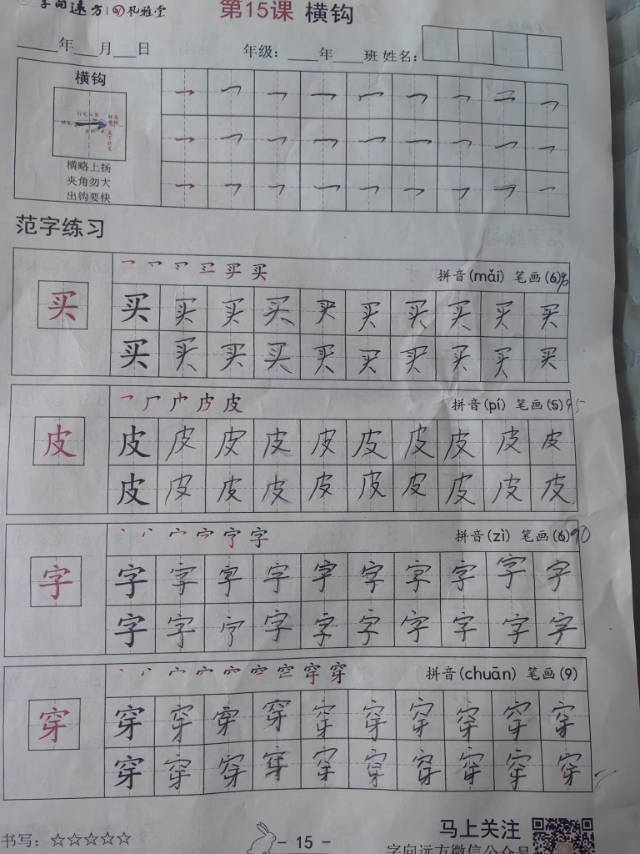 字向远方 札雅堂
第15课 横钩
年 月 日 年级: 年 班 姓名:
横钩
横略上扬
夹角勿大
出钩要快
范字练习
买 拼音(mǎi) 笔画(6)
买 买 买 买 买 买 买 买 买 买 买
买 买 买 买 买 买 买 买 买 买
皮 拼音(pí) 笔画(5) 95
皮 皮 皮 皮 皮 皮 皮 皮 皮 皮 皮
皮 皮 皮 皮 皮 皮 皮 皮 皮 皮
字 拼音(zì) 笔画(6) 90
字 字 字 字 字 字 字 字 字 字 字
字 字 字 字 字 字 字 字 字 字
穿 拼音(chuān) 笔画(9)
穿 穿 穿 穿 穿 穿 穿 穿 穿 穿 穿
穿 穿 穿 穿 穿 穿 穿 穿 穿 穿
书写: ☆☆☆☆☆ - 15 - 马上关注
字向远方微信公众号